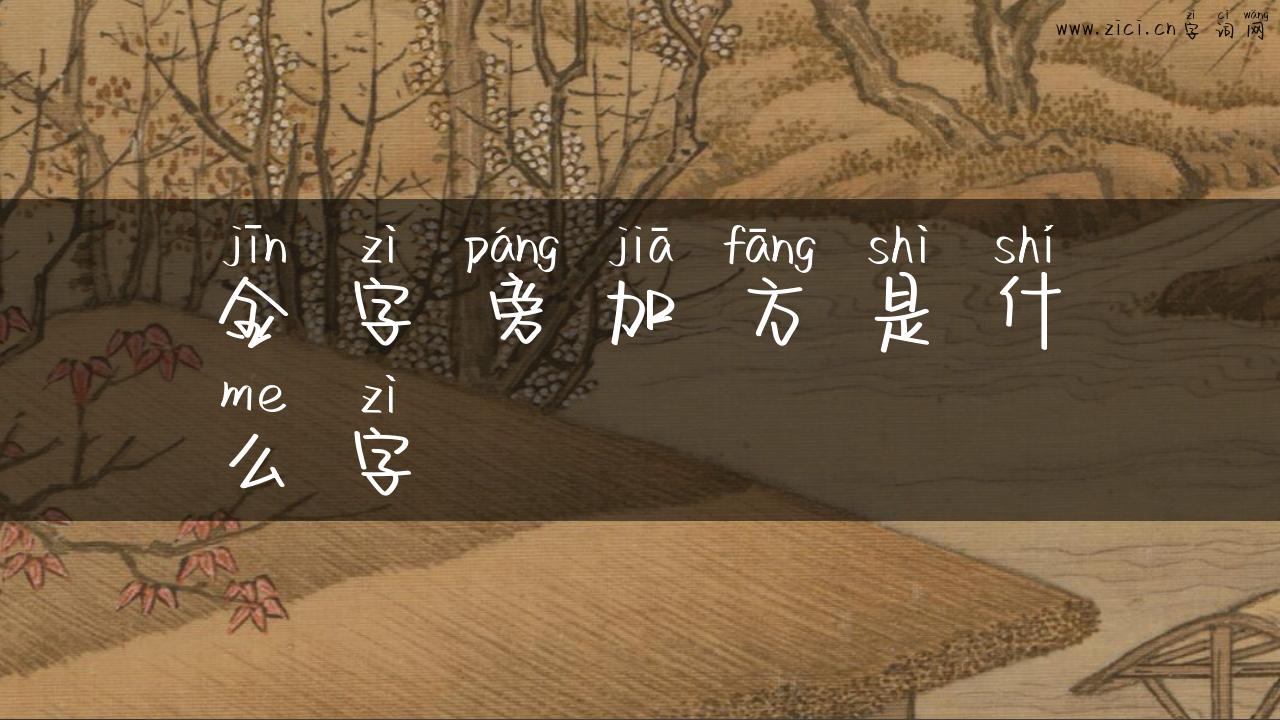 zì cí wǎng
www.zici.cn字词网
jīn zì páng jiā fāng shì shí
金字旁加方是什
me zì
么字